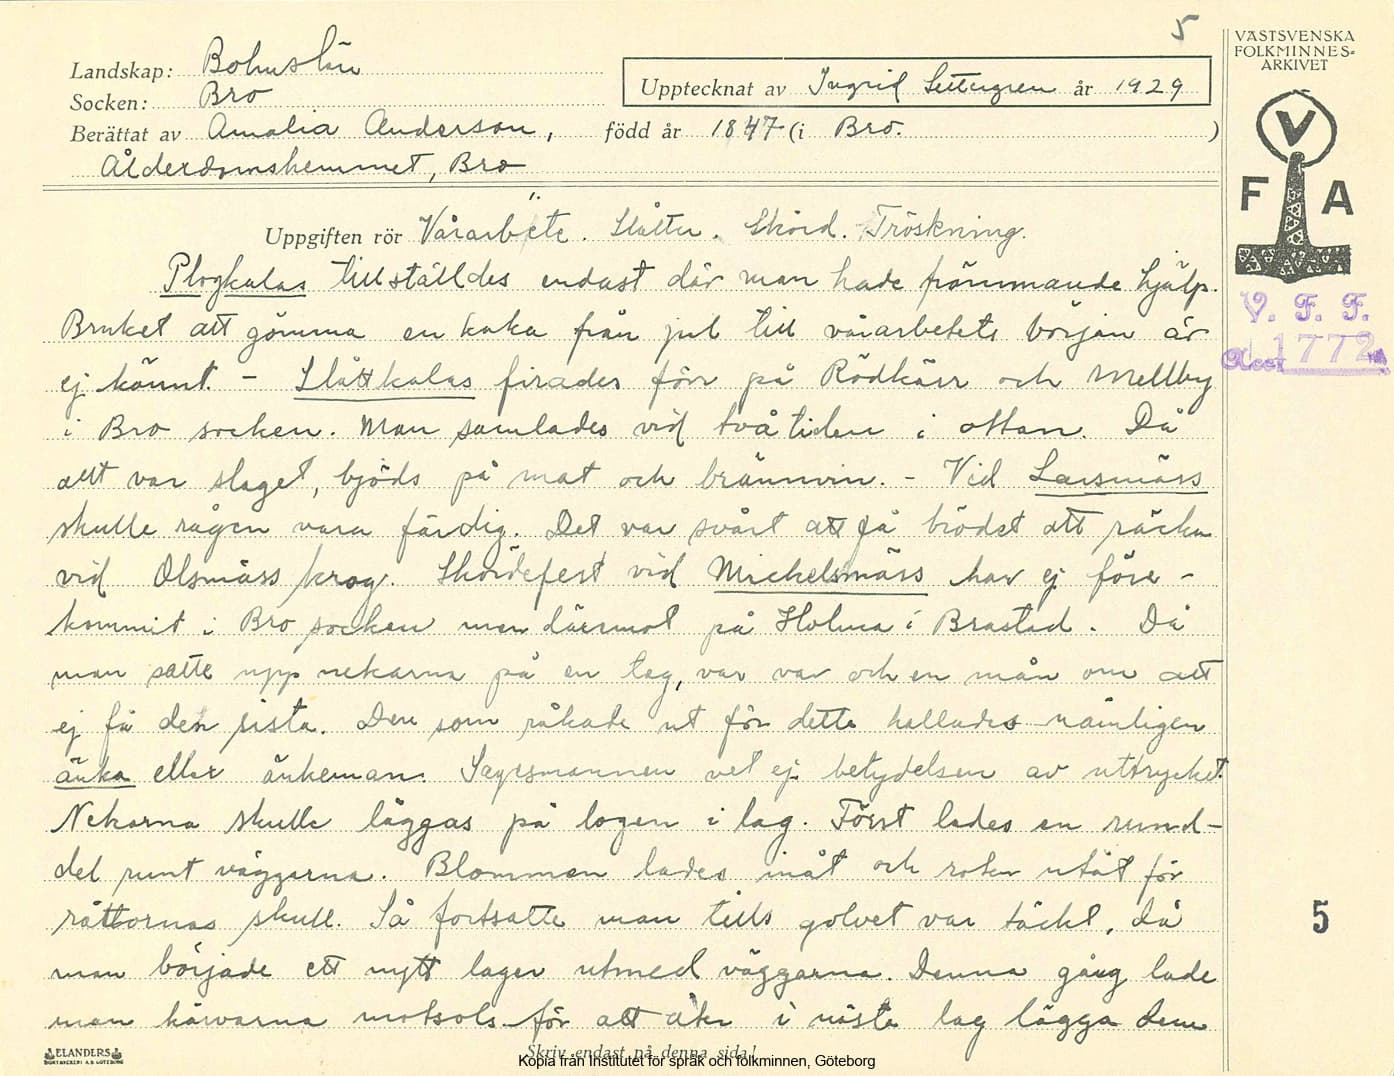 5
VÄSTSVENSKA
FOLKMINNES=
ARKIVET
Landskap: Bohuslän
Upptecknat av Ingrid Settergren år 1929
Socken: Bro
Berättat av Amalia Anderson, född år 1847 (i Bro. )
Ålderdomshemmet, Bro
V
F A
Uppgiften rör Vårarbete. Slåtter. Skörd. Tröskning.
Plogkalas tillställdes endast där man hade främmande hjälp.
Bruket att gömma en kaka från jul till vårarbetets början är
ej känt. - Slåttkalas firades förr på Rödkärr och Mellby
i Bro socken. Man samlades vid två tiden i ottan. Då
allt var slaget, bjöds på mat och brännvin. - Vid Larsmäss
skulle rågen vara färdig. Det var svårt att få brödet att räcka
vid Olsmäss krog. Skördefest vid Mickelsmäss har ej före-
kommit i Bro socken men däremot på Holma i Brastad. Då
man satte upp nekarna på en lag, var var och en mån om att
ej få den sista. Den som råkade ut för detta kallades nämligen
änka eller änkeman. Sagesmannen vet ej betydelsen av uttrycket.
Nekarna skulle läggas på logen i lag. Först lades en rund-
del runt väggarna. Blomman lades inåt och roten utåt för
råttornas skull. Så fortsatte man tills golvet var täckt, då
man började ett nytt lager utmed väggarna. Denna gång lade
man kärvarna motsols för att åter i nästa lag lägga dem
V. F. F.
Acc. 1772
5
ELANDERS
BOKTRYCKERI A.B. GÖTEBORG
Skriv endast på denna sida!
Kopia från Institutet för språk och folkminnen, Göteborg